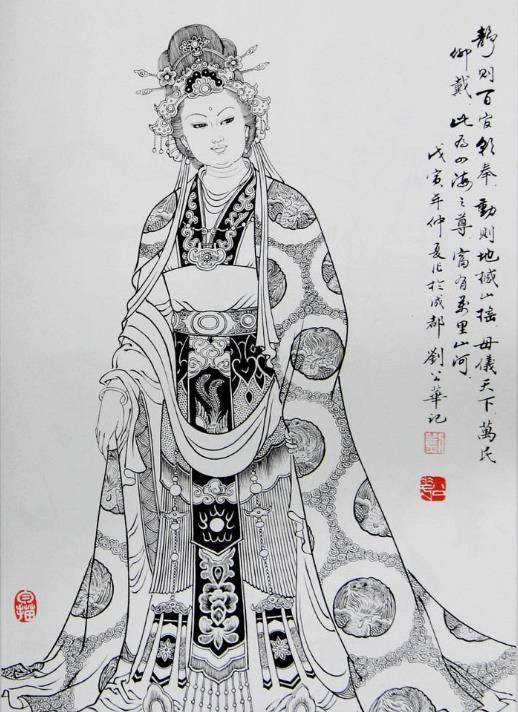 静则百官朝奉动则地撼山摇母仪天下萬民
仰戴此为四海之尊富有万里山河
戊寅年仲夏作於成都劉公華记
白描